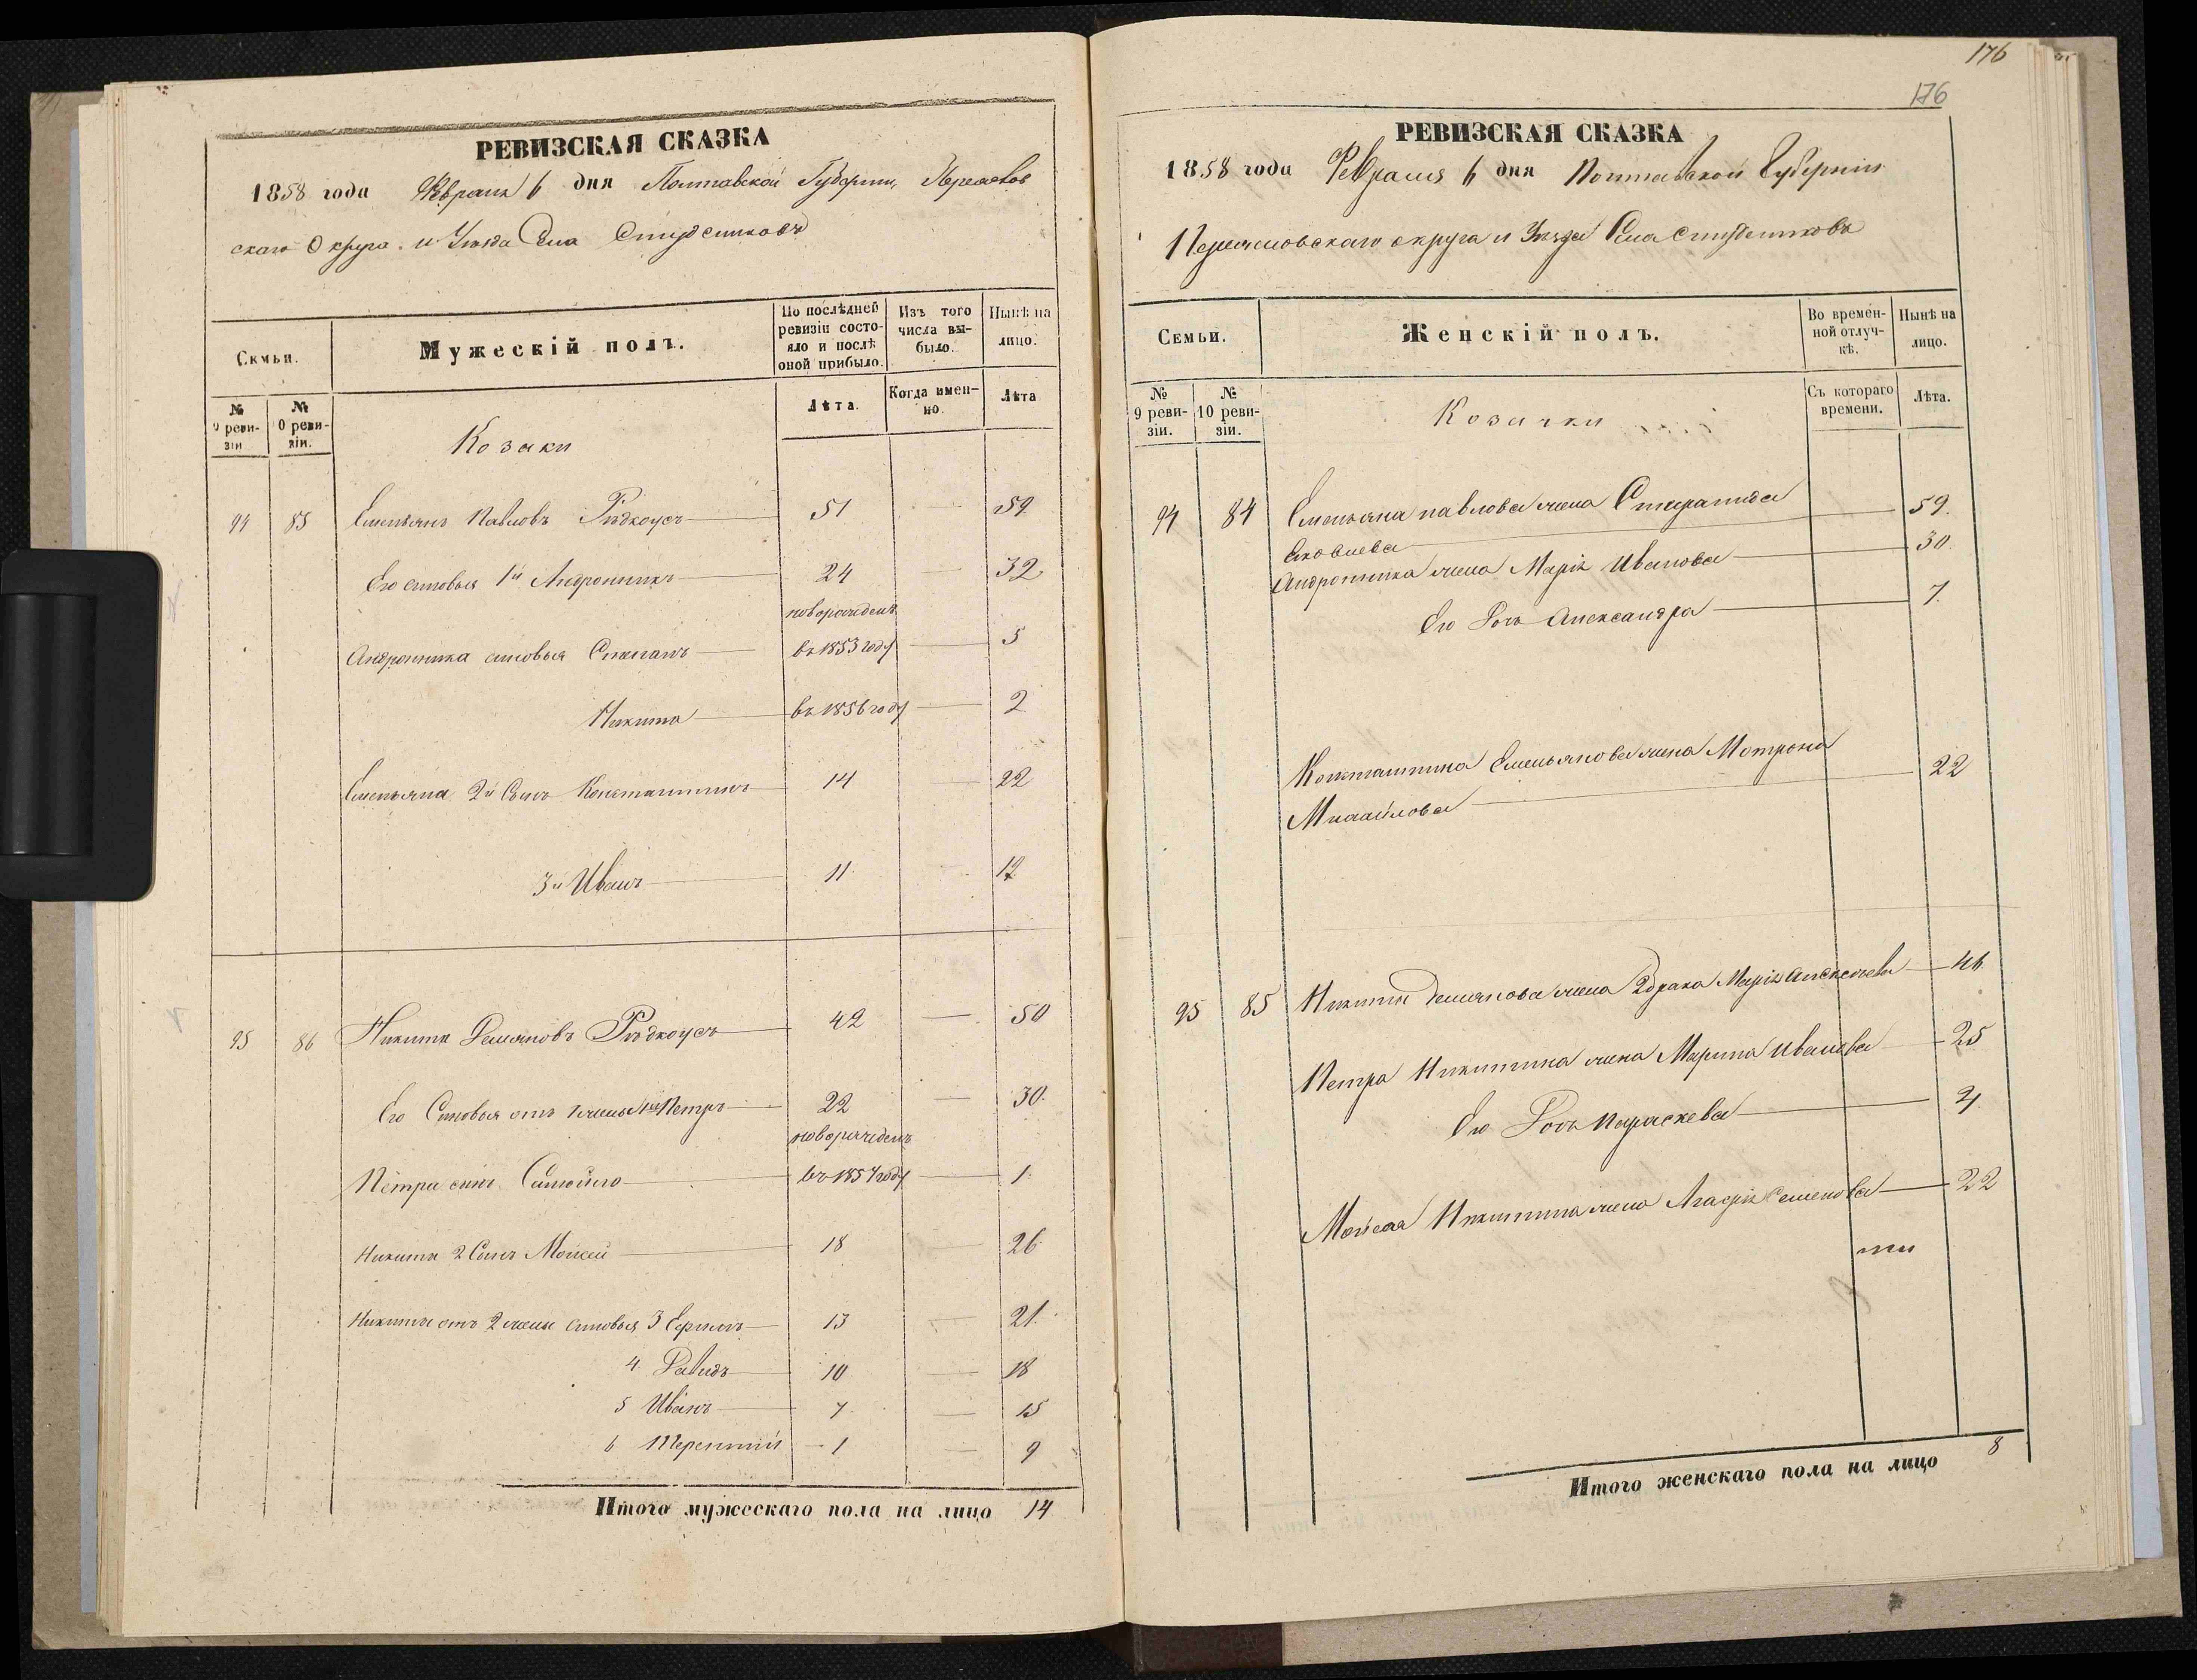 РЕВИЗСКАЯ СКАЗКА
1858 года Февраля 6 дня Полтавской Губернии, Переяслов
скаго Округа и Уѣзда Села Студениковъ
Семьи.
Мужескій полъ.
По послѣдней ревизіи состояло и послѣ оной прибыло.
Изъ того числа выбыло.
Нынѣ на лицо.
№ 9 ревизіи
№ 0 ревизіи.
Лѣта.
Когда именно.
Лѣта
Козаки
94 85 Емельянъ Павловъ Рѣдкоусъ 51 59
Его сыновья 1й Андроникъ 24 32
новорожденъ
Андроника сыновья Степанъ въ 1853 году 5
Никита въ 1856 году 2
Емельяна 2й Сынъ Константинъ 14 22
3й Иванъ 11 19
95 86 Никита Демяновъ Рѣдкоусъ 42 50
Его Сыновья отъ 1 жены 1й Петръ 22 30.
новорожденъ
Петра сынъ Самойло въ 1857 году 1.
Никиты 2 Сынъ Мойсей 18 26
Никиты отъ 2 жены сыновья 3 Ефимъ 13 21.
4 Давидъ 10 18
5 Иванъ 7 15
6 Терентій 1 9
Итого мужескаго пола на лицо 14
176
176
РЕВИЗСКАЯ СКАЗКА
1858 года Февраля 6 дня Полтавской Губерніи
Переясловскаго округа и Уѣзда Села Студениковъ
Семьи.
Женскій полъ.
Во временной отлучкѣ.
Нынѣ на лицо.
№ 9 ревизіи.
№ 10 ревизіи.
Съ котораго времени.
Лѣта.
Козачки
94 84 Емельяна павлова жена Стерапида
Яковлева 59.
Андроника жена Марія Иванова 30.
Его Дочь Александра 7.
Константина Емельянова жена Мотрона
Михайлова 22
95 85 Никиты Демянова жена 2 брака Марія Алексеева 46
Петра Никитина жена Марина Иванова 25
Его Дочь Параскева 4
Мойсея Никитина жена Агафія Семенова 22
Итого женскаго пола на лицо 8